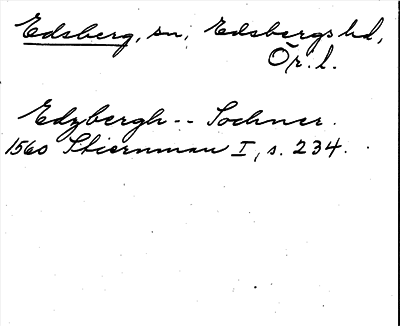 Edsberg, sn, Edsbergs hd,
Ör. l.
Edzbergh -- Sochner.
1560 Stiernman I, s. 234.